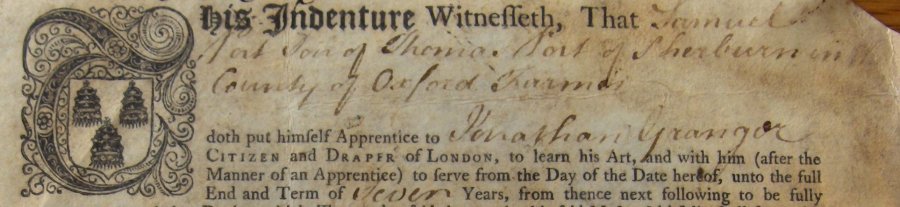 This Indenture Witnesseth, That Samuel
Wort Son of Thomas Wort of Sherburn in the
County of Oxford Farmer
doth put himself Apprentice to Jonathan Granger
CITIZEN and DRAPER of LONDON, to learn his Art, and with him (after the
Manner of an Apprentice) to serve from the Day of the Date hereof, unto the full
End and Term of Seven Years, from thence next following to be fully